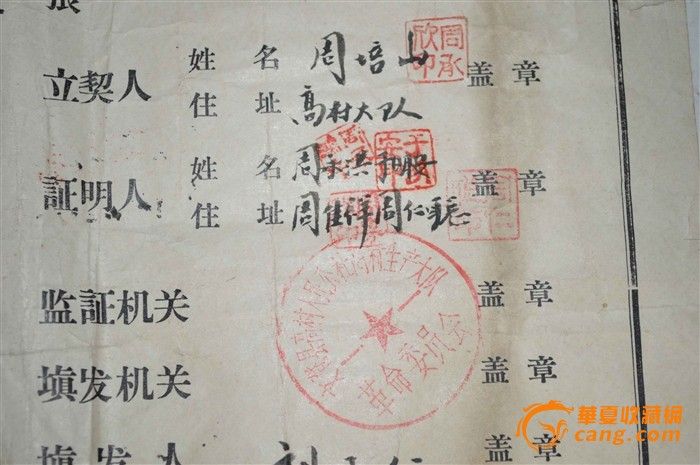 张
姓 名 周培
周承欣印
立契人 盖 章
住 址 高村大队
姓 名 周永洪
証明人 盖 章
住 址 周佳祥 周仁
监証机关 盖 章
生产大队
革命委员会
填发机关 盖 章
填发人 盖 章
華夏收藏網
cang.com